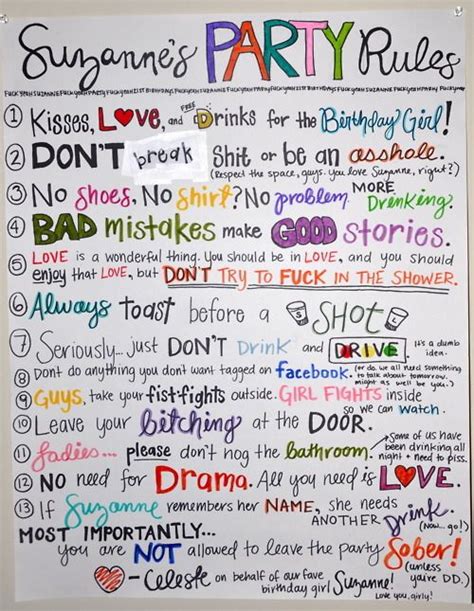 Suzanne's PARTY Rules
FUCK YEAH SUZANNE FUCK YEAH PARTY FUCK YEAH 21ST BIRTHDAYS FUCK YEAH SUZANNE FUCK YEAH PARTY FUCK YEAH BIRTHDAYS
① Kisses, LOVE, and FREE Drinks for the Birthday Girl!
② DON'T break Shit or be an asshole.
(Respect the space, guys. You love Suzanne, right?)
③ No Shoes, No Shirt? No problem. MORE Drinking.
④ BAD mistakes make GOOD stories.
⑤ LOVE is a wonderful thing. You should be in LOVE, and you should
enjoy that LOVE, but DON'T TRY TO FUCK IN THE SHOWER.
⑥ Always toast before a SHOT
⑦ Seriously... just DON'T Drink and DRIVE. It's a dumb idea.
⑧ Dont do anything you don't want tagged on facebook. (or do. we all need something
to talk about tomorrow.
might as well be you.)
⑨ GUYS, take your fist-fights outside. GIRL FIGHTS inside
so we can watch.
⑩ Leave your bitching at the DOOR.
⑪ Ladies... please don't hog the bathroom. Some of us have
been drinking all
night + need to piss.
⑫ NO need for Drama. All you need is LOVE.
⑬ If Suzanne remembers her NAME, she needs
ANOTHER Drink. (Now... go!)
MOST IMPORTANTLY...
you are NOT allowed to leave the party Sober!
(unless you're DD.)
- Celeste on behalf of our fave
birthday girl Suzanne!
Love you, girly!